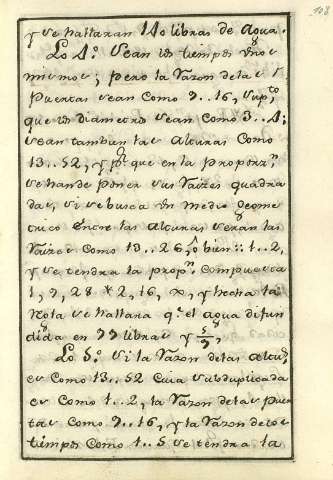 108
y se hallaran 140 libras de Agua.
Lo 4º. Sean los tiempos unos
mismos; pero la Razon de las
Puertas sean como 9..16, supto
que los diametros sean como 3..4;
sean tambien las Alturas como
13..52, y pr. que en la Proporzn.
se han de poner sus Raizes quadra
das, si se busca un medio geome
trico entre las alturas seran las
Raizes como 13..26, o bien :: 1..2,
y se tendra la propn. compuesta
1, 9, 28 * 2, 16, x, y hecha la
Nota se hallara q.e el agua difun
dida en 99 libras y 5/9,
Lo 5º. Si la Razon de las Altus.
es como 13..52 cuia subduplicada
es como 1..2, la Razon de las Puer
tas como 9..16, y la Razon de los
tiempos como 1..5 se tendra la